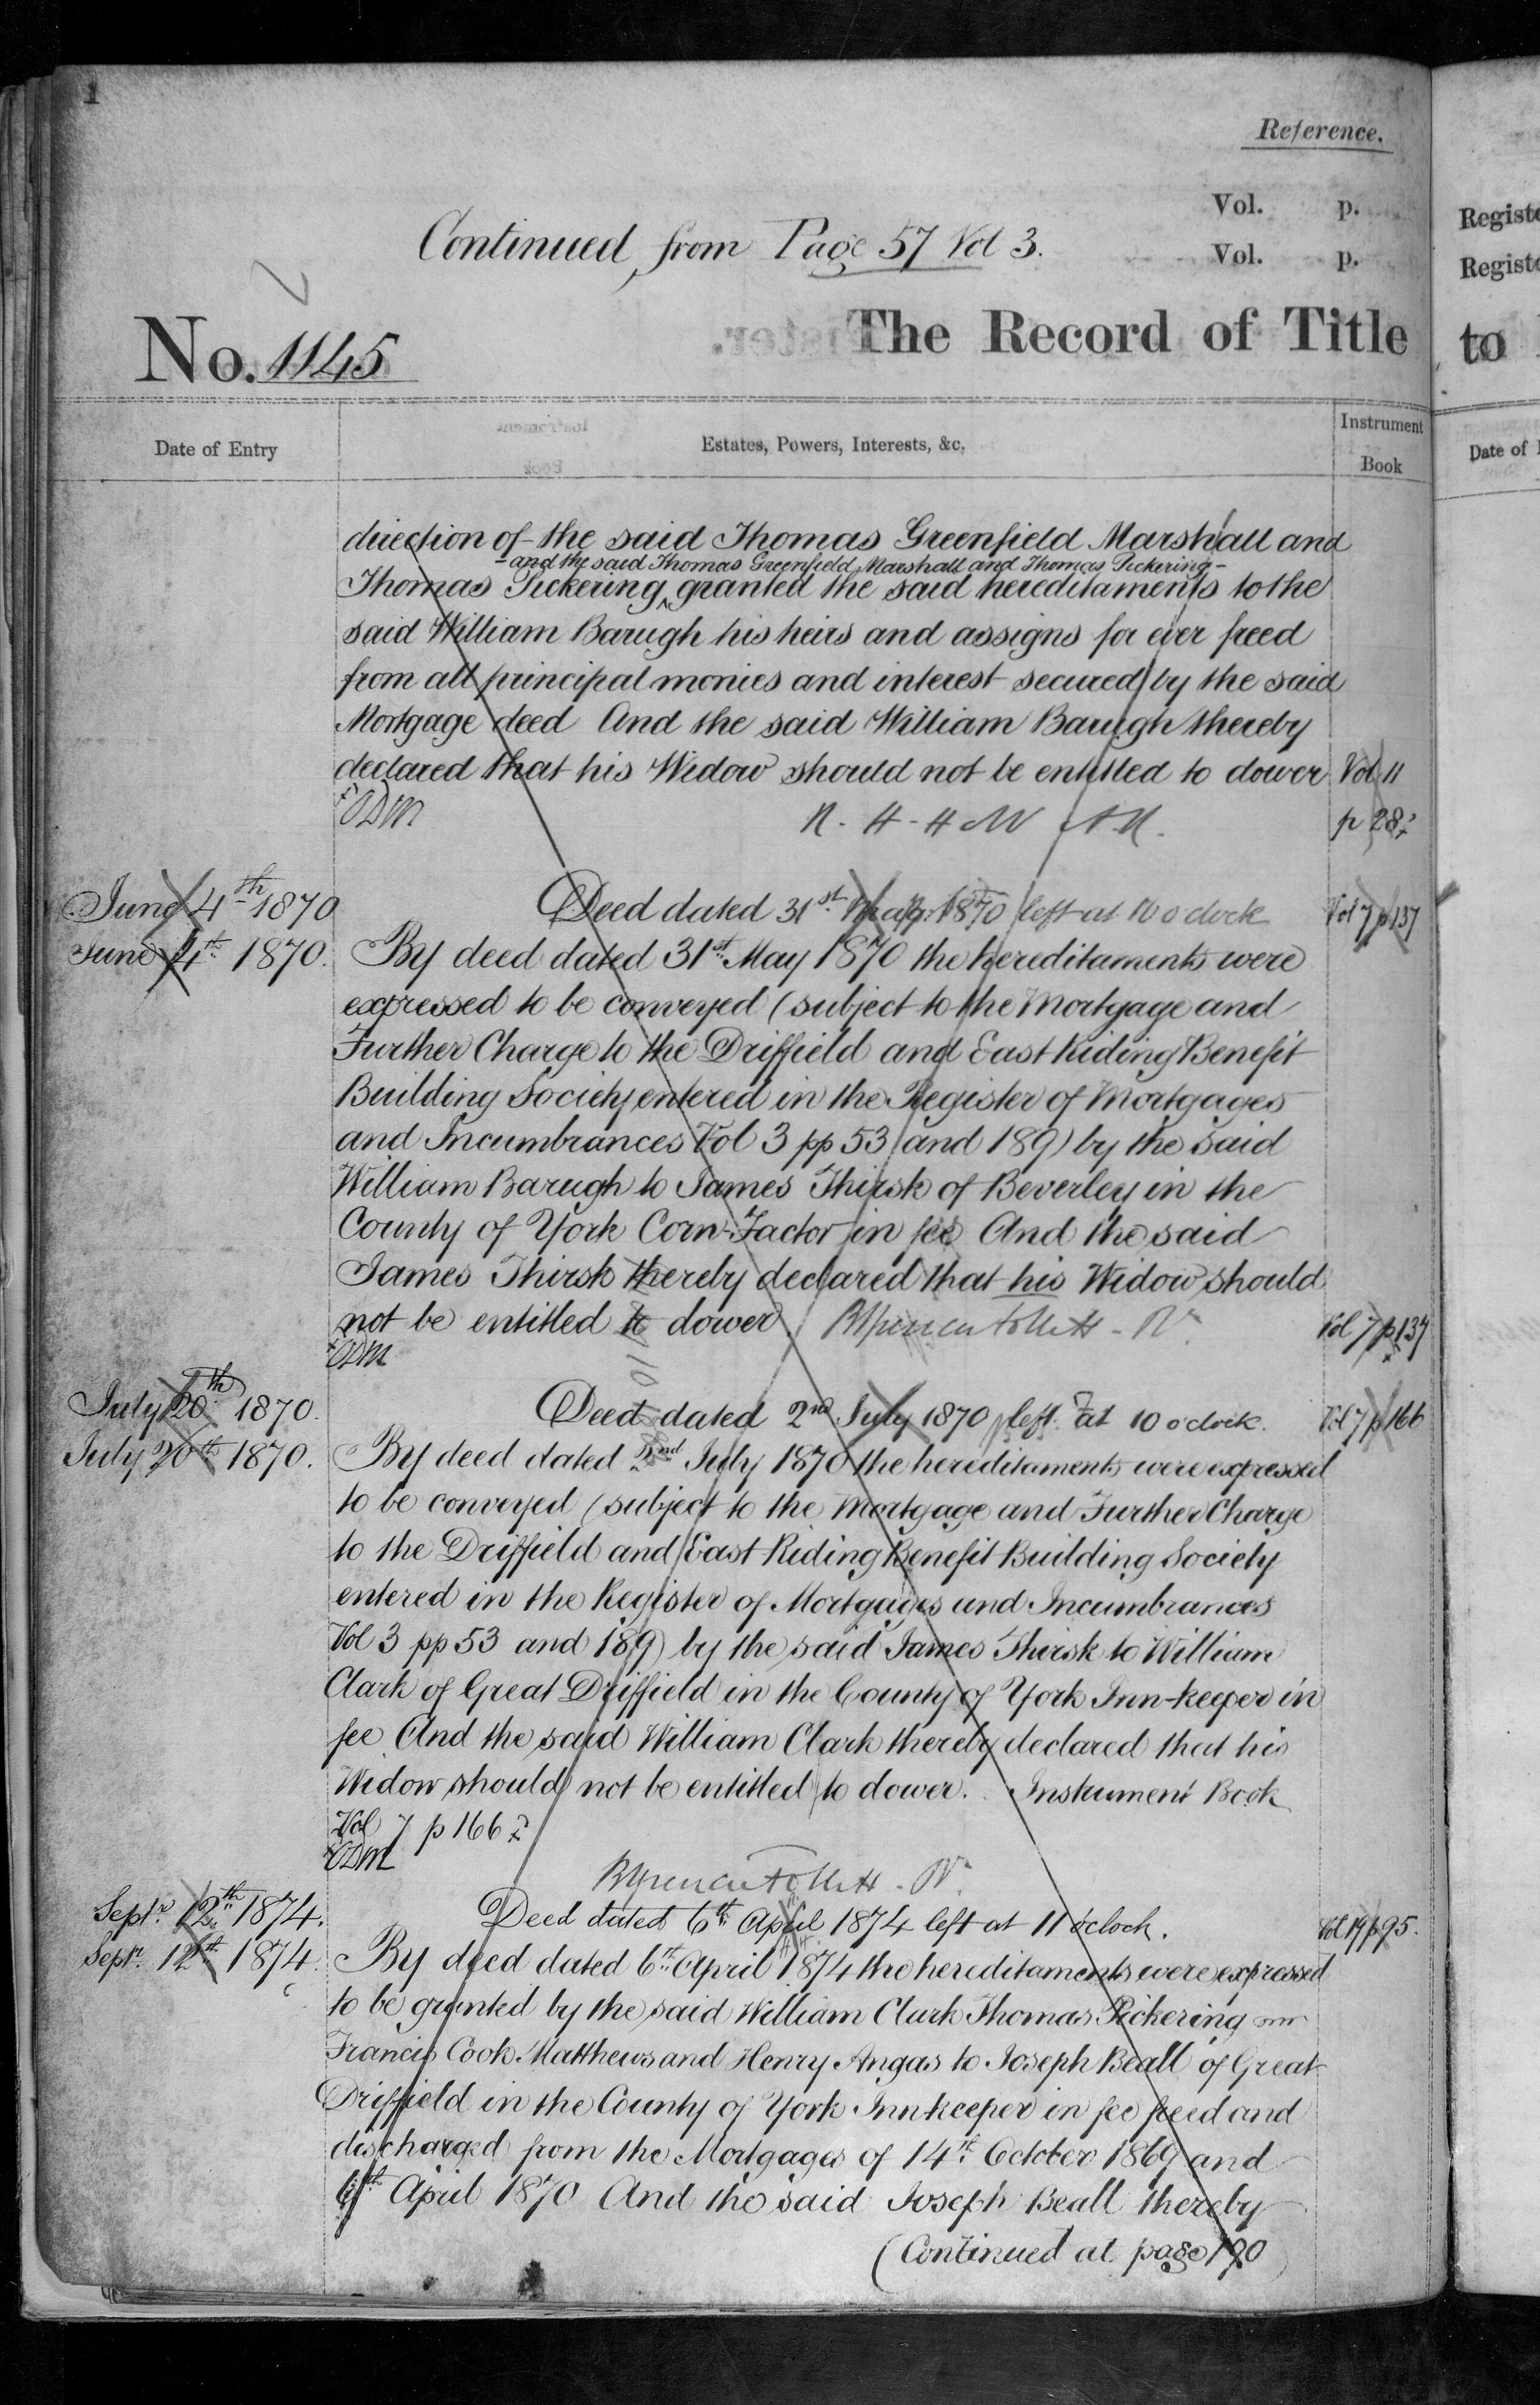 1
Reference.
Vol. p.
Continued from Page 57 Vol 3.
Vol. p.
No. 1145
The Record of Title
Date of Entry
Estates, Powers, Interests, &c.
Instrument
Book
direction of the said Thomas Greenfield Marshall and
- and the said Thomas Greenfield Marshall and Thomas Pickering -
Thomas Pickering granted the said hereditaments to the
said William Barugh his heirs and assigns for ever freed
from all principal monies and interest secured by the said
Mortgage deed And the said William Barugh thereby
declared that his Widow should not be entitled to dower Vol 11
p 28
June 4th 1870 Deed dated 31st May 1870 left at 10 o'clock Vol 7 p 137
June 4th 1870. By deed dated 31st May 1870 the hereditaments were
expressed to be conveyed (subject to the Mortgage and
Further Charge to the Driffield and East Riding Benefit
Building Society entered in the Register of Mortgages
and Incumbrances Vol 3 pp 53 and 189) by the said
William Barugh to James Thirsk of Beverley in the
County of York Corn-Factor in fee And the said
James Thirsk thereby declared that his Widow should
not be entitled to dower Vol 7 p 137
July 20th 1870. Deed dated 2nd July 1870 left at 10 o'clock. Vol 7 p 166
July 20th 1870. By deed dated 2nd July 1870 the hereditaments were expressed
to be conveyed (subject to the Mortgage and Further Charge
to the Driffield and East Riding Benefit Building Society
entered in the Register of Mortgages and Incumbrances
Vol 3 pp 53 and 189) by the said James Thirsk to William
Clark of Great Driffield in the County of York Inn-keeper in
fee And the said William Clark thereby declared that his
Widow should not be entitled to dower. Instrument Book
Vol 7 p 166
Septr. 12th 1874. Deed dated 6th April 1874 left at 11 o'clock. Vol 19 p 95.
Septr. 12th 1874. By deed dated 6th April 1874 the hereditaments were expressed
to be granted by the said William Clark Thomas Pickering
Francis Cook Matthews and Henry Angas to Joseph Beall of Great
Driffield in the County of York Innkeeper in fee freed and
discharged from the Mortgages of 14th October 1869 and
6th April 1870 And the said Joseph Beall thereby
(Continued at page 190)
Registe
Registe
to
Date of